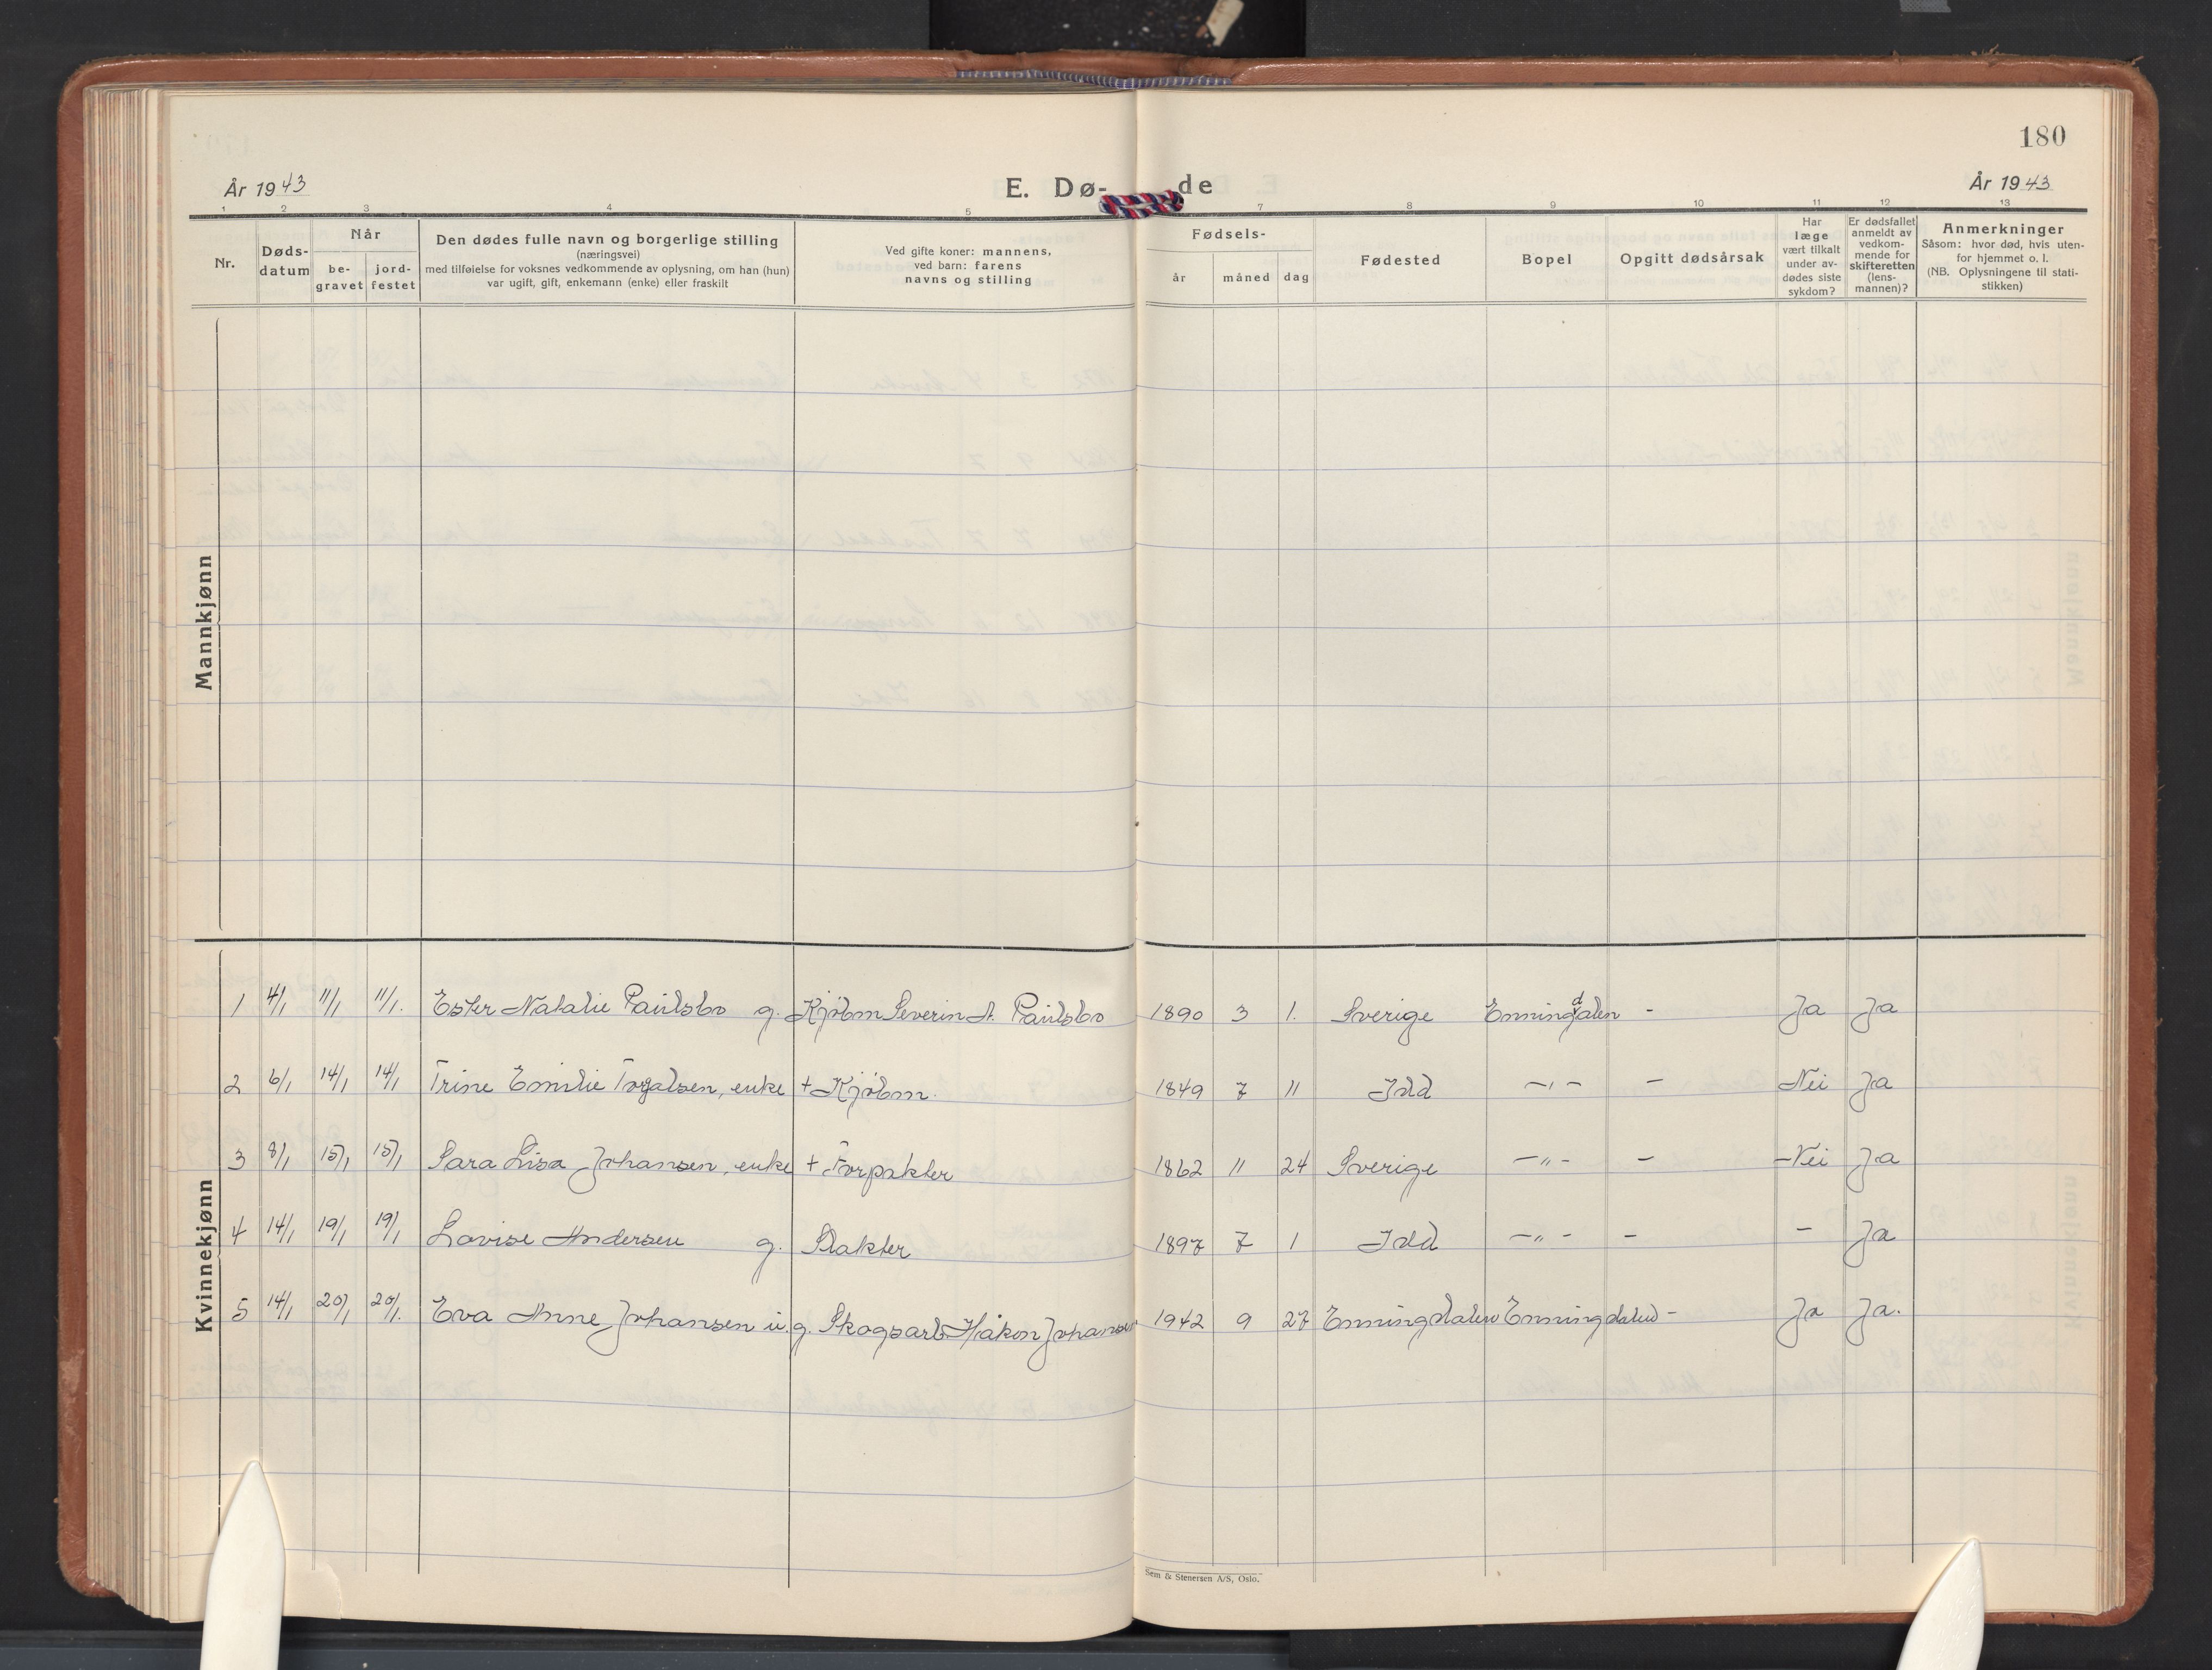 180
År 1943
E. Dø-
de
År 1943
1 2 3 4 5 7 8 9 10 11 12 13
Nr.
Døds-
datum
Når
be-
gravet
jord-
festet
Den dødes fulle navn og borgerlige stilling
(næringsvei)
med tilføielse for voksnes vedkommende av oplysning, om han (hun)
var ugift, gift, enkemann (enke) eller fraskilt
Ved gifte koner: mannens,
ved barn: farens
navns og stilling
Fødsels-
år måned dag
Fødested
Bopel
Opgitt dødsårsak
Har
læge
vært tilkalt
under av-
dødes siste
sykdom?
Er dødsfallet
anmeldt av
vedkom-
mende for
skifteretten
(lens-
mannen)?
Anmerkninger
Såsom: hvor død, hvis uten-
for hjemmet o. l.
(NB. Oplysningene til stati-
stikken)
Mannkjønn
Kvinnekjønn
1 4/1 11/1 11/1. Ester Natalie Paulsbo g. Kjøbm Severin A. Paulsbo 1890 3 1. Sverige Enningdalen - Ja Ja
2 6/1 14/1 14/1 Trine Emilie Torgalsen, enke + Kjøbm. 1849 7 11 Idd -"- - Nei Ja
3 8/1 15/1 15/1 Sara Lisa Johansen, enke + Forpakter 1862 11 24 Sverige -"- - Nei Ja
4 14/1 19/1 19/1 Lovise Andersen g. Slakter 1897 7 1 Idd -"- - - Ja
5 14/1 20/1 20/1. Eva Anne Johansen u.g. Skogsarb Håkon Johansen 1942 9 27 Enningdalen Enningdalen - Ja Ja.
Sem & Stenersen A/S, Oslo.